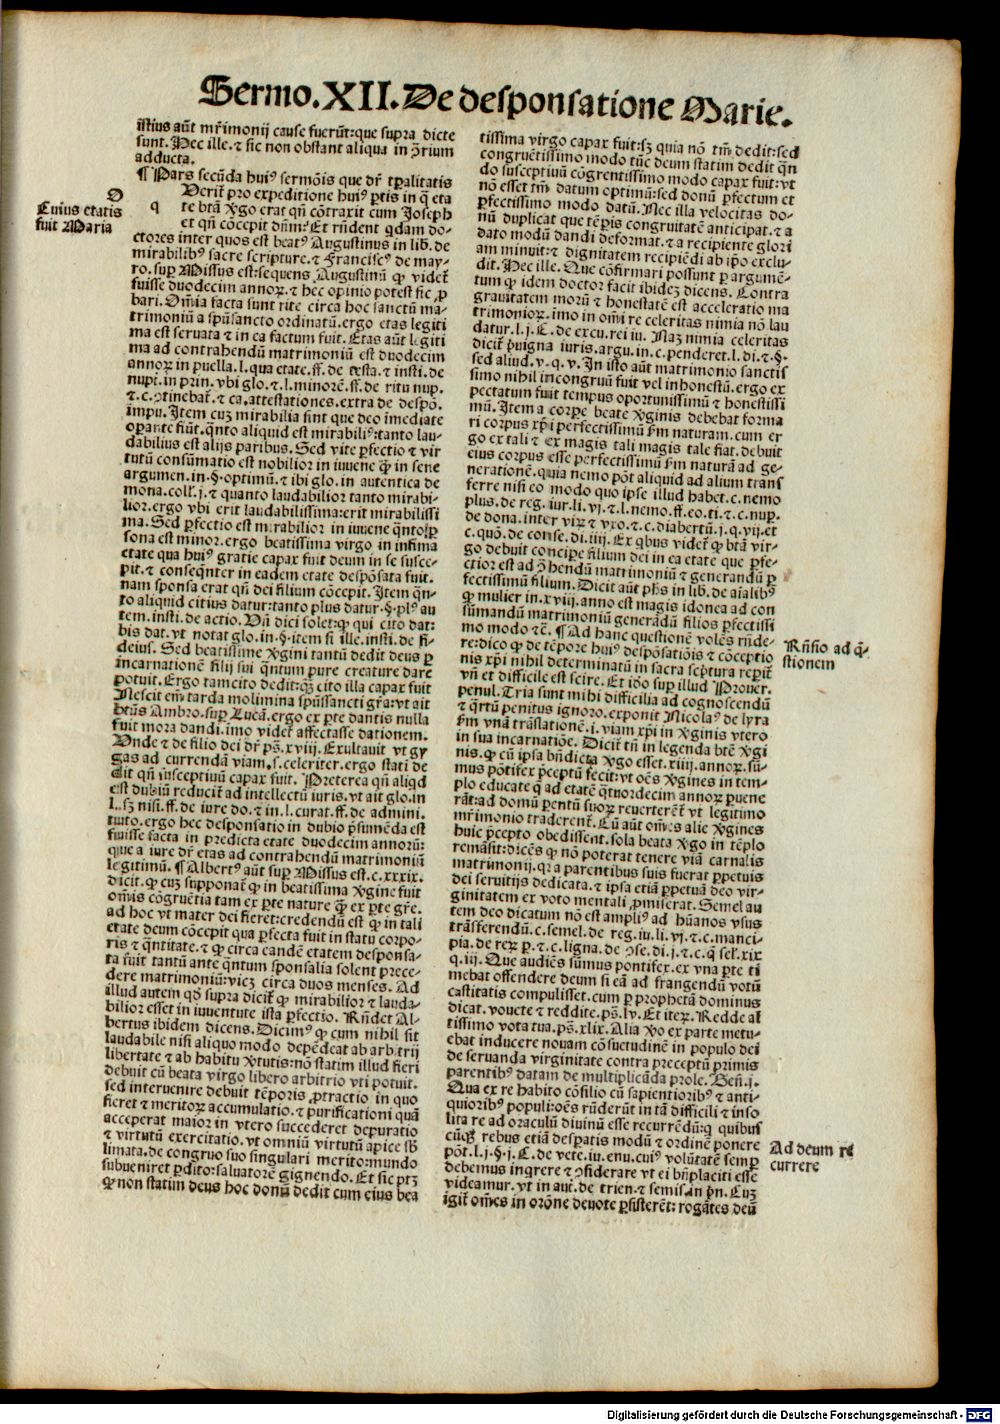 Sermo.XII.De desponsatione Marie.
istius aūt mr̄imonij cause fuerūt: que supra dicte
sunt. Hec ille. ⁊ sic non obstant aliqua in ꝯ̄rium
adducta.
¶ Pars secūda huiꝰ sermōis que dr̄ tꝑalitatis
D
Cuius etatis
fuit Maria
q
Uerit̄ pro expeditione huiꝰ ꝑtis in q̄ eta
te btā ỽgo erat qn̄ cōtraxit cum Joseph
et qn̄ cōcepit dn̄m? Et rn̄dent qdam do-
ctores inter quos est beatꝰ Augustinus in lib. de
mirabilibꝰ sacre scripture. ⁊ Franciscꝰ de may-
ro. suꝑ Missus est: sequens Augustinū ꝙ videt̄
fuisse duodecim annoꝝ. ⁊ hec opinio potest sic ꝓ
bari. Om̄ia facta sunt rite circa hoc sanctū ma-
trimoniū a spūsancto ordinatū. ergo etas legiti
ma est seruata ⁊ in ea factum fuit. Etas aūt legiti
ma ad contrahendū matrimoniū est duodecim
annoꝝ in puella. l. qua etate. ff. de testa. ⁊ insti. de
nupt. in prin. vbi glo. ⁊ l. minorē. ff. de ritu nup.
⁊ c. ꝯtinebat̄. ⁊ ca. attestationes. extra de despō.
impu. Item cuꝫ mirabilia sint que deo imediate
oꝑante fiūt. qn̄to aliquid est mirabiliꝰ: tanto lau-
dabilius est alijs paribus. Sed vite ꝑfectio ⁊ vir
tutū consūmatio est nobilior in iuuene q̄ꝫ in sene
argumen. in. §. optimū. ⁊ ibi glo. in autentica de
mona. coll̄. j. ⁊ quanto laudabilior tanto mirabi-
lior. ergo vbi erit laudabilissima: erit mirabilissi
ma. Sed ꝑfectio est mirabilior in iuuene qn̄to ꝑ
sona est minor. ergo beatissima virgo in infima
etate qua huiꝰ gratie capax fuit deum in se susce-
pit. ⁊ conseqn̄ter in eadem etate despōsata fuit.
nam sponsa erat qn̄ dei filium cōcepit. Item qn̄-
to aliquid citius datur: tanto plus datur. §. plꝰ au
tem. insti. de actio. Un̄ dici solet: ꝙ qui cito dat:
bis dat. vt notat glo. in. §. item si ille. insti. de fi-
deius. Sed beatissime ỽgini tantū dedit deus ꝑ
incarnationē filij sui qn̄tum pure creature dare
potuit. Ergo tam cito dedit: q̄ꝫ cito illa capax fuit
Nescit em̄ tarda molimina spūssancti gr̄a: vt ait
btūs Ambro. suꝑ Lucā. ergo ex ꝑte dantis nulla
fuit mora dandi. imo videt̄ affectasse dationem.
Unde ⁊ de filio dei dr̄ ps̄. xviij. Exultauit vt gy
gas ad currendā viam. s. celeriter. ergo stati de
dit qn̄ insceptiuū capax fuit. Preterea qn̄ aliqd
est dubiū reducit̄ ad intellectū iuris. vt ait glo. in
l. sꝫ nisi. ff. de iure do. ⁊ in. l. curat. ff. de admini.
tuto. ergo hec desponsatio in dubio p̄sumēda est
fuisse facta in predicta etate duodecim annorū:
que a iure dr̄ etas ad contrahendū matrimoniū
legitimū. ¶ Albertꝰ aūt suꝑ Missus est. c. xxxix.
dicit. ꝙ cuꝫ supponat̄ ꝙ in beatissima ỽgine fuit
om̄is cōgruētia tam ex ꝑte nature q̄ꝫ ex ꝑte gr̄e.
ad hoc vt mater dei fieret: credendū est ꝙ in tali
etate deum cōcepit qua ꝑfecta fuit in statu corpo-
ris ⁊ qn̄titate. ⁊ ꝙ circa eandē etatem desponsa-
ta fuit tantū ante qn̄tum sponsalia solent prece-
dere matrimoniū: vicꝫ circa duos menses. Ad
illud autem qd̄ supra dicit̄ ꝙ mirabilior ⁊ lauda-
bilior esset in iuuentute ista ꝑfectio. Rn̄det Al-
bertus ibidem dicens. Dicimꝰ ꝙ cum nihil sit
laudabile nisi aliquo modo depēdeat ab arbitrij
libertate ⁊ ab habitu ỽtutis: nō statim illud fieri
debuit cū beata virgo libero arbitrio vti potuit.
sed interuenire debuit tēporis ꝓtractio in quo
fieret ⁊ meritoꝝ accumulatio. ⁊ purificationi quā
acceperat maior in vtero succederet depuratio
⁊ virtutū exercitatio. vt omniū virtutū apice sb̄
limata. de congruo suo singulari merito: mundo
subueniret ꝑdito: saluatorē gignendo. Et sic ptꝫ
ꝙ non statim deus hoc donū dedit cum eius bea
tissima virgo capax fuit: sꝫ quia nō tm̄ dedit: sed
congruētissimo modo tūc deum statim dedit qn̄
do susceptiuū cōgrentissimo modo capax fuit: vt
nō esset tm̄ datum optimū: sed donū ꝑfectum et
ꝑfectissimo modo datū. Nec illa velocitas do-
nū duplicat que tēpris congruitatē anticipat. ⁊ a
dato modū dandi deformat. ⁊ a recipiente glori
am minuit: ⁊ dignitatem recipiēdi ab ip̄o exclu-
dit. Hec ille. Que cōfirmari possunt ꝑ argumē-
tum ꝙ idem doctor facit ibidez dicens. Contra
grauitatem morū ⁊ honestatē est acceleratio ma
trimonioꝝ. imo in om̄i re celeritas nimia nō lau
datur. l. j. C. de excu. rei iu. Naꝫ nimia celeritas
dicit̄ p̄uigna iuris. argu. in. c. penderet. l. di. ⁊. §.
sed aliud. v. q. v. In isto aūt matrimonio sanctis
simo nihil incongruū fuit vel inhonestū. ergo ex
pectatum fuit tempus oportunissimū ⁊ honestissi
mū. Item a corpe beate ỽginis debebat forma
ri corpus xp̄i ꝑfectissimū s̄m naturam. cum er
go ex tali ⁊ ex magis tali magis tale fiat. debuit
eius corpus esse perfectissimū s̄m naturā ad ge-
nerationē. quia nemo pōt aliquid ad alium trans
ferre nisi eo modo quo ipse illud habet. c. nemo
plus. de reg. iur. li. vj. ⁊. l. nemo. ff. eo. ti. ⁊. c. nup.
de dona. inter viꝝ ⁊ vxo. ⁊. c. diabertū. j. q. vij. et
c. quō. de conse. di. iiij. Ex qbus videt̄ ꝙ btā vir-
go debuit concipe filium dei in ea etate que ꝑfe-
ctior est ad ꝯ̄hendū matrimoniū ⁊ generandū ꝑ
fectissimū filium. Dicit aūt ph̄s in lib. de aīalibꝰ
ꝙ mulier in. xviij. anno est magis idonea ad con
sūmandū matrimoniū generādū filios ꝑfectissi
mo modo ⁊c̄. ¶ Ad hanc questionē volēs rn̄de-
re: dico ꝙ de tēpore huiꝰ despōsatiōis ⁊ cōceptio
nis xp̄i nihil determinatū in sacra scp̄tura reperit̄
vn̄ et difficile est scire. Et idō suꝑ illud Prouer.
penul. Tria sunt mihi difficilia ad cognoscendū
⁊ q̄rtū penitus ignoro. exponit Nicolaꝰ de lyra
s̄m vnā trāslationē. j. viam xp̄i in ỽginis vtero
in sua incarnatiōe. Dicit̄ tn̄ in legenda btē ỽgi
nis. ꝙ cū ipsa bn̄dicta ỽgo esset. xiiij. annoꝝ. sū-
mus pōtifex p̄ceptū fecit: vt oēs ỽgines in tem-
plo educate q̄ ad etatē q̄tuordecim annoꝝ puene
rāt: ad domū parentū suoꝝ reuerterēt̄ vt legitimo
mr̄imonio traderent̄. Cū aūt om̄es alie ỽgines
huic p̄cepto obedissent. sola beata ỽgo in tēplo
remāsit: dicēs ꝙ nō poterat tenere viā carnalis
matrimonij. qꝛ a parentibus suis fuerat ꝑpetuis
dei seruitijs dedicata. ⁊ ipsa etiā ꝑpetuā deo vir-
ginitatem ex voto mentali ꝓmiserat. Semel au
tem deo dicatum nō est ampliꝰ ad hūanos vsus
trāsferendū. c. semel. de reg. iu. li. vj. ⁊. c. manci-
pia. de reꝝ ꝑ. ⁊. c. ligna. de ꝯse. di. j. ⁊ c. q̄ sel̄. xix
q. iij. Que audiēs sūmus pontifex. ex vna ꝑte ti
mebat offendere deum si eā ad frangendū votū
castitatis compulisset. cum ꝑ prophetā dominus
dicat. vouete ⁊ reddite. ps̄. lv. Et iteꝝ. Redde al
tissimo vota tua. ps̄. xlix. Alia ỽo ex parte metu-
ebat inducere nouam cōsuetudinē in populo dei
de seruanda virginitate contra preceptū primis
parentibꝰ datam de multiplicūda prole. Gen̄. j.
Qua ex re habito cōsilio cū sapientioribꝰ ⁊ anti-
quioribꝰ populi: oēs rn̄derūt in tā difficili ⁊ inso
lita re ad oraculū diuinū esse recurrēdū: q̄ quibus
cūqꝫ rebus etiā despatis modū ⁊ ordinē ponere
pōt. l. j. §. j. C. de vete. iu. enu. cuiꝰ volūtatē semp
debemus inqrere ⁊ ꝯfiderare vt ei bn̄placiti esse
videamur. vt in aut̄. de trien. ⁊ semis. in pn̄. Cuꝫ
igit̄ om̄es in orōne deuote ꝑsisterēt: rogātes deū
Rn̄sio ad q̄-
stionem
Ad deum re
currere
Digitalisierung gefördert durch die Deutsche Forschungsgemeinschaft - DFG